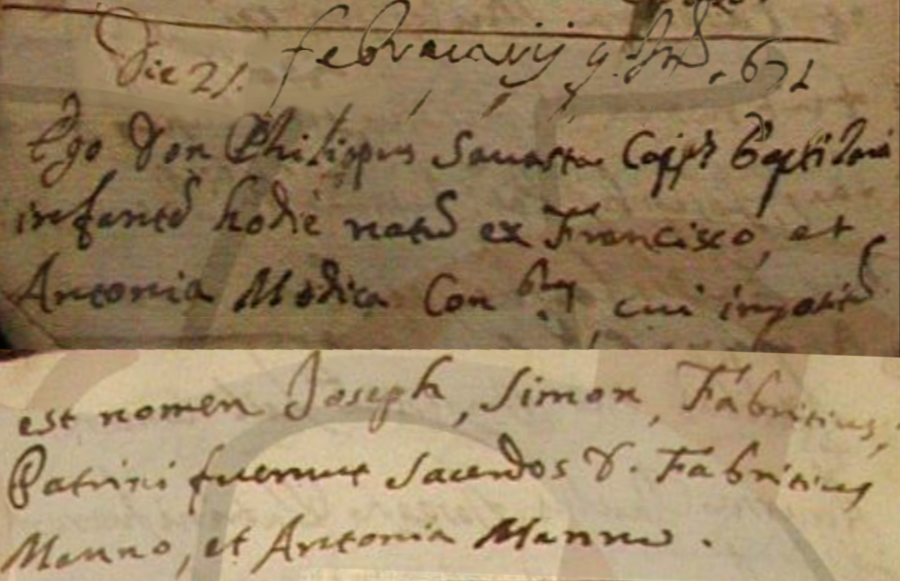 Die 21. februarij 9. Ind. 671
Ego Don Philippus Sauasta Capp.s baptizaui
infantẽ hodie natũ ex Francisco, et
Antonia Modica Con bus, cui impositũ
est nomen Joseph, Simon, Fabritius,
Patrini fuerunt Sacerdos D. Fabritius
Manno, et Antonia Manno.